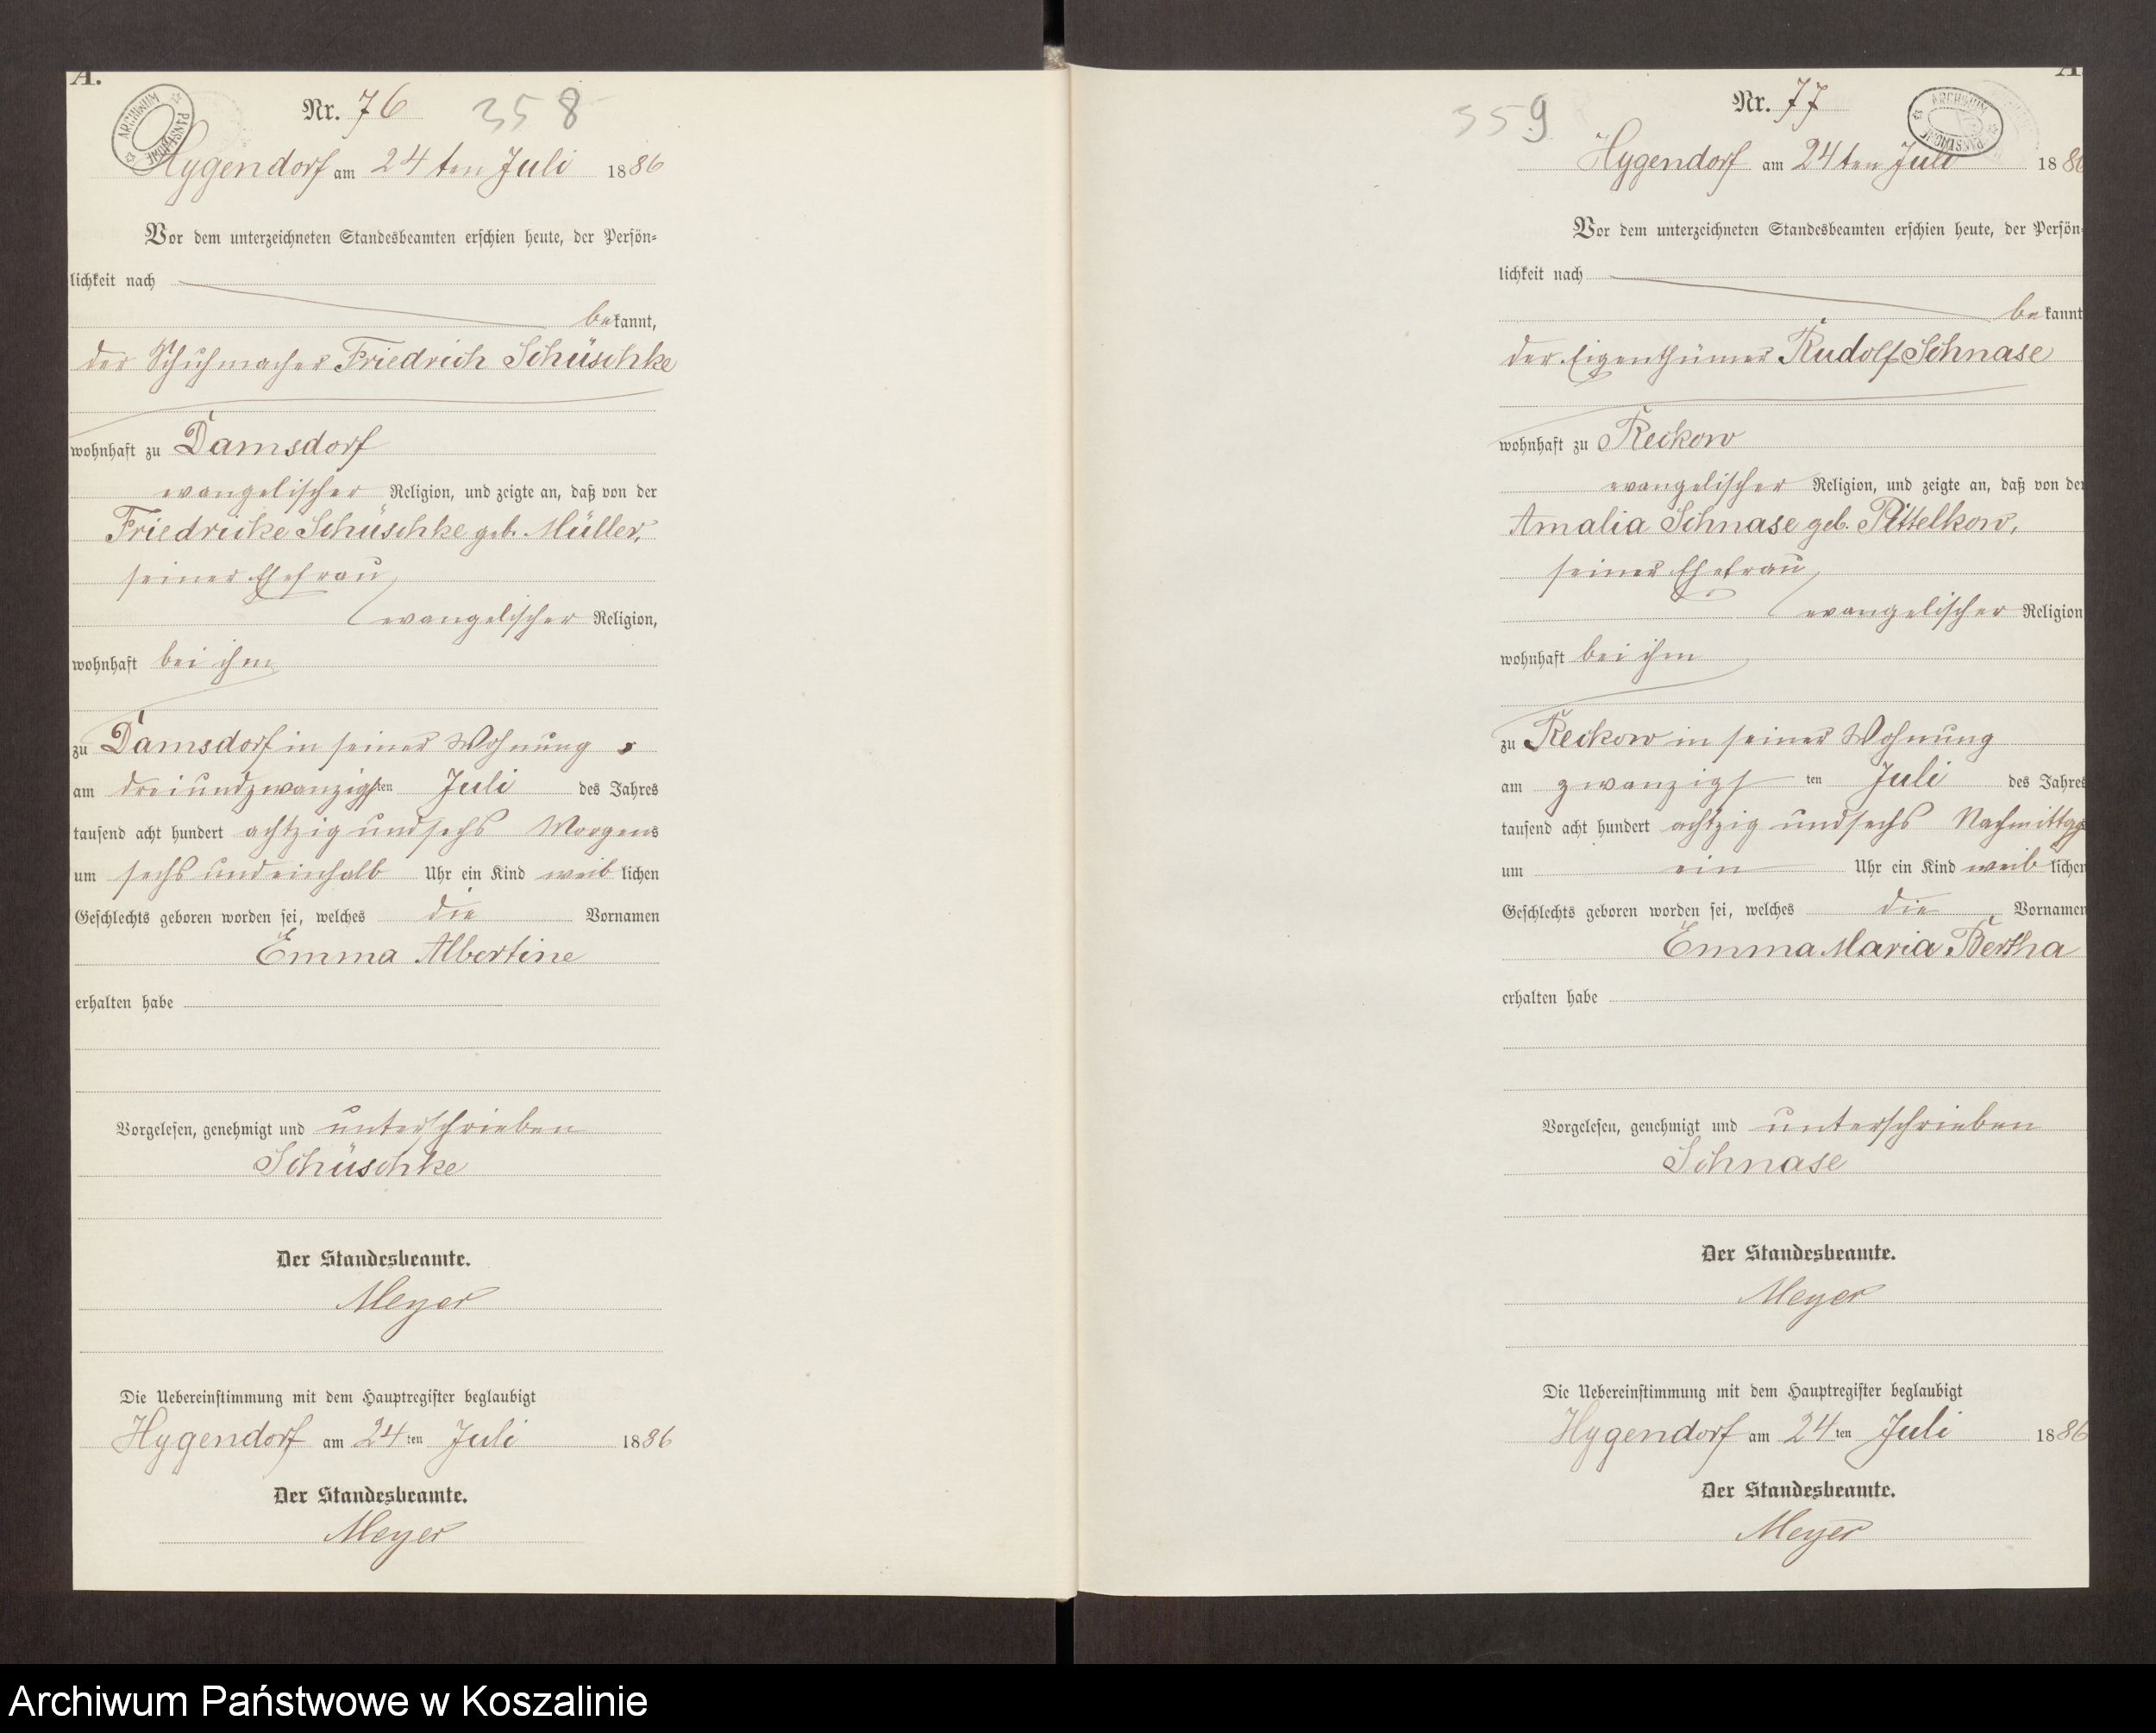 A.
ARCHIWUM PAŃSTWOWE
Nr. 76 358
Hygendorf am 24 ten Juli 1886
Vor dem unterzeichneten Standesbeamten erschien heute, der Persön-
lichkeit nach
bekannt,
der Schuhmacher Friedrich Schüschke
wohnhaft zu Damsdorf
evangelischer Religion, und zeigte an, daß von der
Friedricke Schüschke geb. Müller,
seiner Ehefrau,
evangelischer Religion,
wohnhaft bei ihm
zu Damsdorf in seiner Wohnung
am dreiundzwanzigsten Juli des Jahres
tausend acht hundert achtzig und sechs Morgens
um sechs und einhalb Uhr ein Kind weiblichen
Geschlechts geboren worden sei, welches die Vornamen
Emma Albertine
erhalten habe
Vorgelesen, genehmigt und unterschrieben
Schüschke
Der Standesbeamte.
Meyer
Die Uebereinstimmung mit dem Hauptregister beglaubigt
Hygendorf am 24 ten Juli 1886
Der Standesbeamte.
Meyer
A
359 Nr. 77
ARCHIWUM PAŃSTWOWE
Hygendorf am 24 ten Juli 1886
Vor dem unterzeichneten Standesbeamten erschien heute, der Persön-
lichkeit nach
bekannt
der Eigenthümer Rudolf Schnase
wohnhaft zu Reckow
evangelischer Religion, und zeigte an, daß von der
Amalia Schnase geb. Pittelkow,
seiner Ehefrau,
evangelischer Religion
wohnhaft bei ihm
zu Reckow in seiner Wohnung
am zwanzigsten Juli des Jahres
tausend acht hundert achtzig und sechs Nachmittags
um ein Uhr ein Kind weiblichen
Geschlechts geboren worden sei, welches die Vornamen
Emma Maria Bertha
erhalten habe
Vorgelesen, genehmigt und unterschrieben
Schnase
Der Standesbeamte.
Meyer
Die Uebereinstimmung mit dem Hauptregister beglaubigt
Hygendorf am 24 ten Juli 1886
Der Standesbeamte.
Meyer
Archiwum Państwowe w Koszalinie